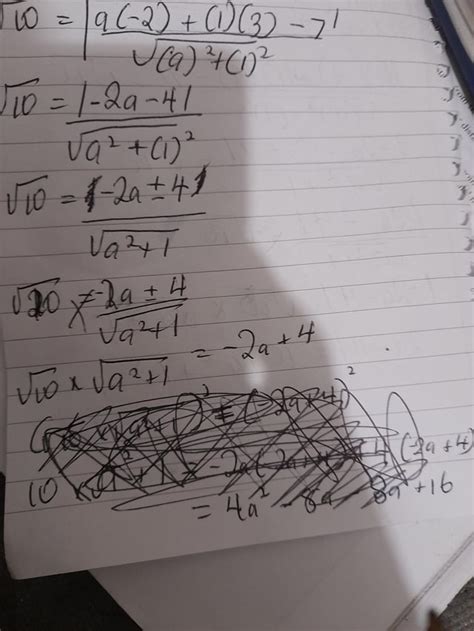 √10 = |a(-2) + (1)(3) - 7|
√(a)² + (1)²
√10 = |-2a - 4|
√a² + (1)²
√10 = -2a ± 4
√a² + 1
√10 = -2a ± 4
√a² + 1
√10 × √a² + 1 = -2a + 4
(-2a + 4)
10
= 4a² - 8a - 8a + 16